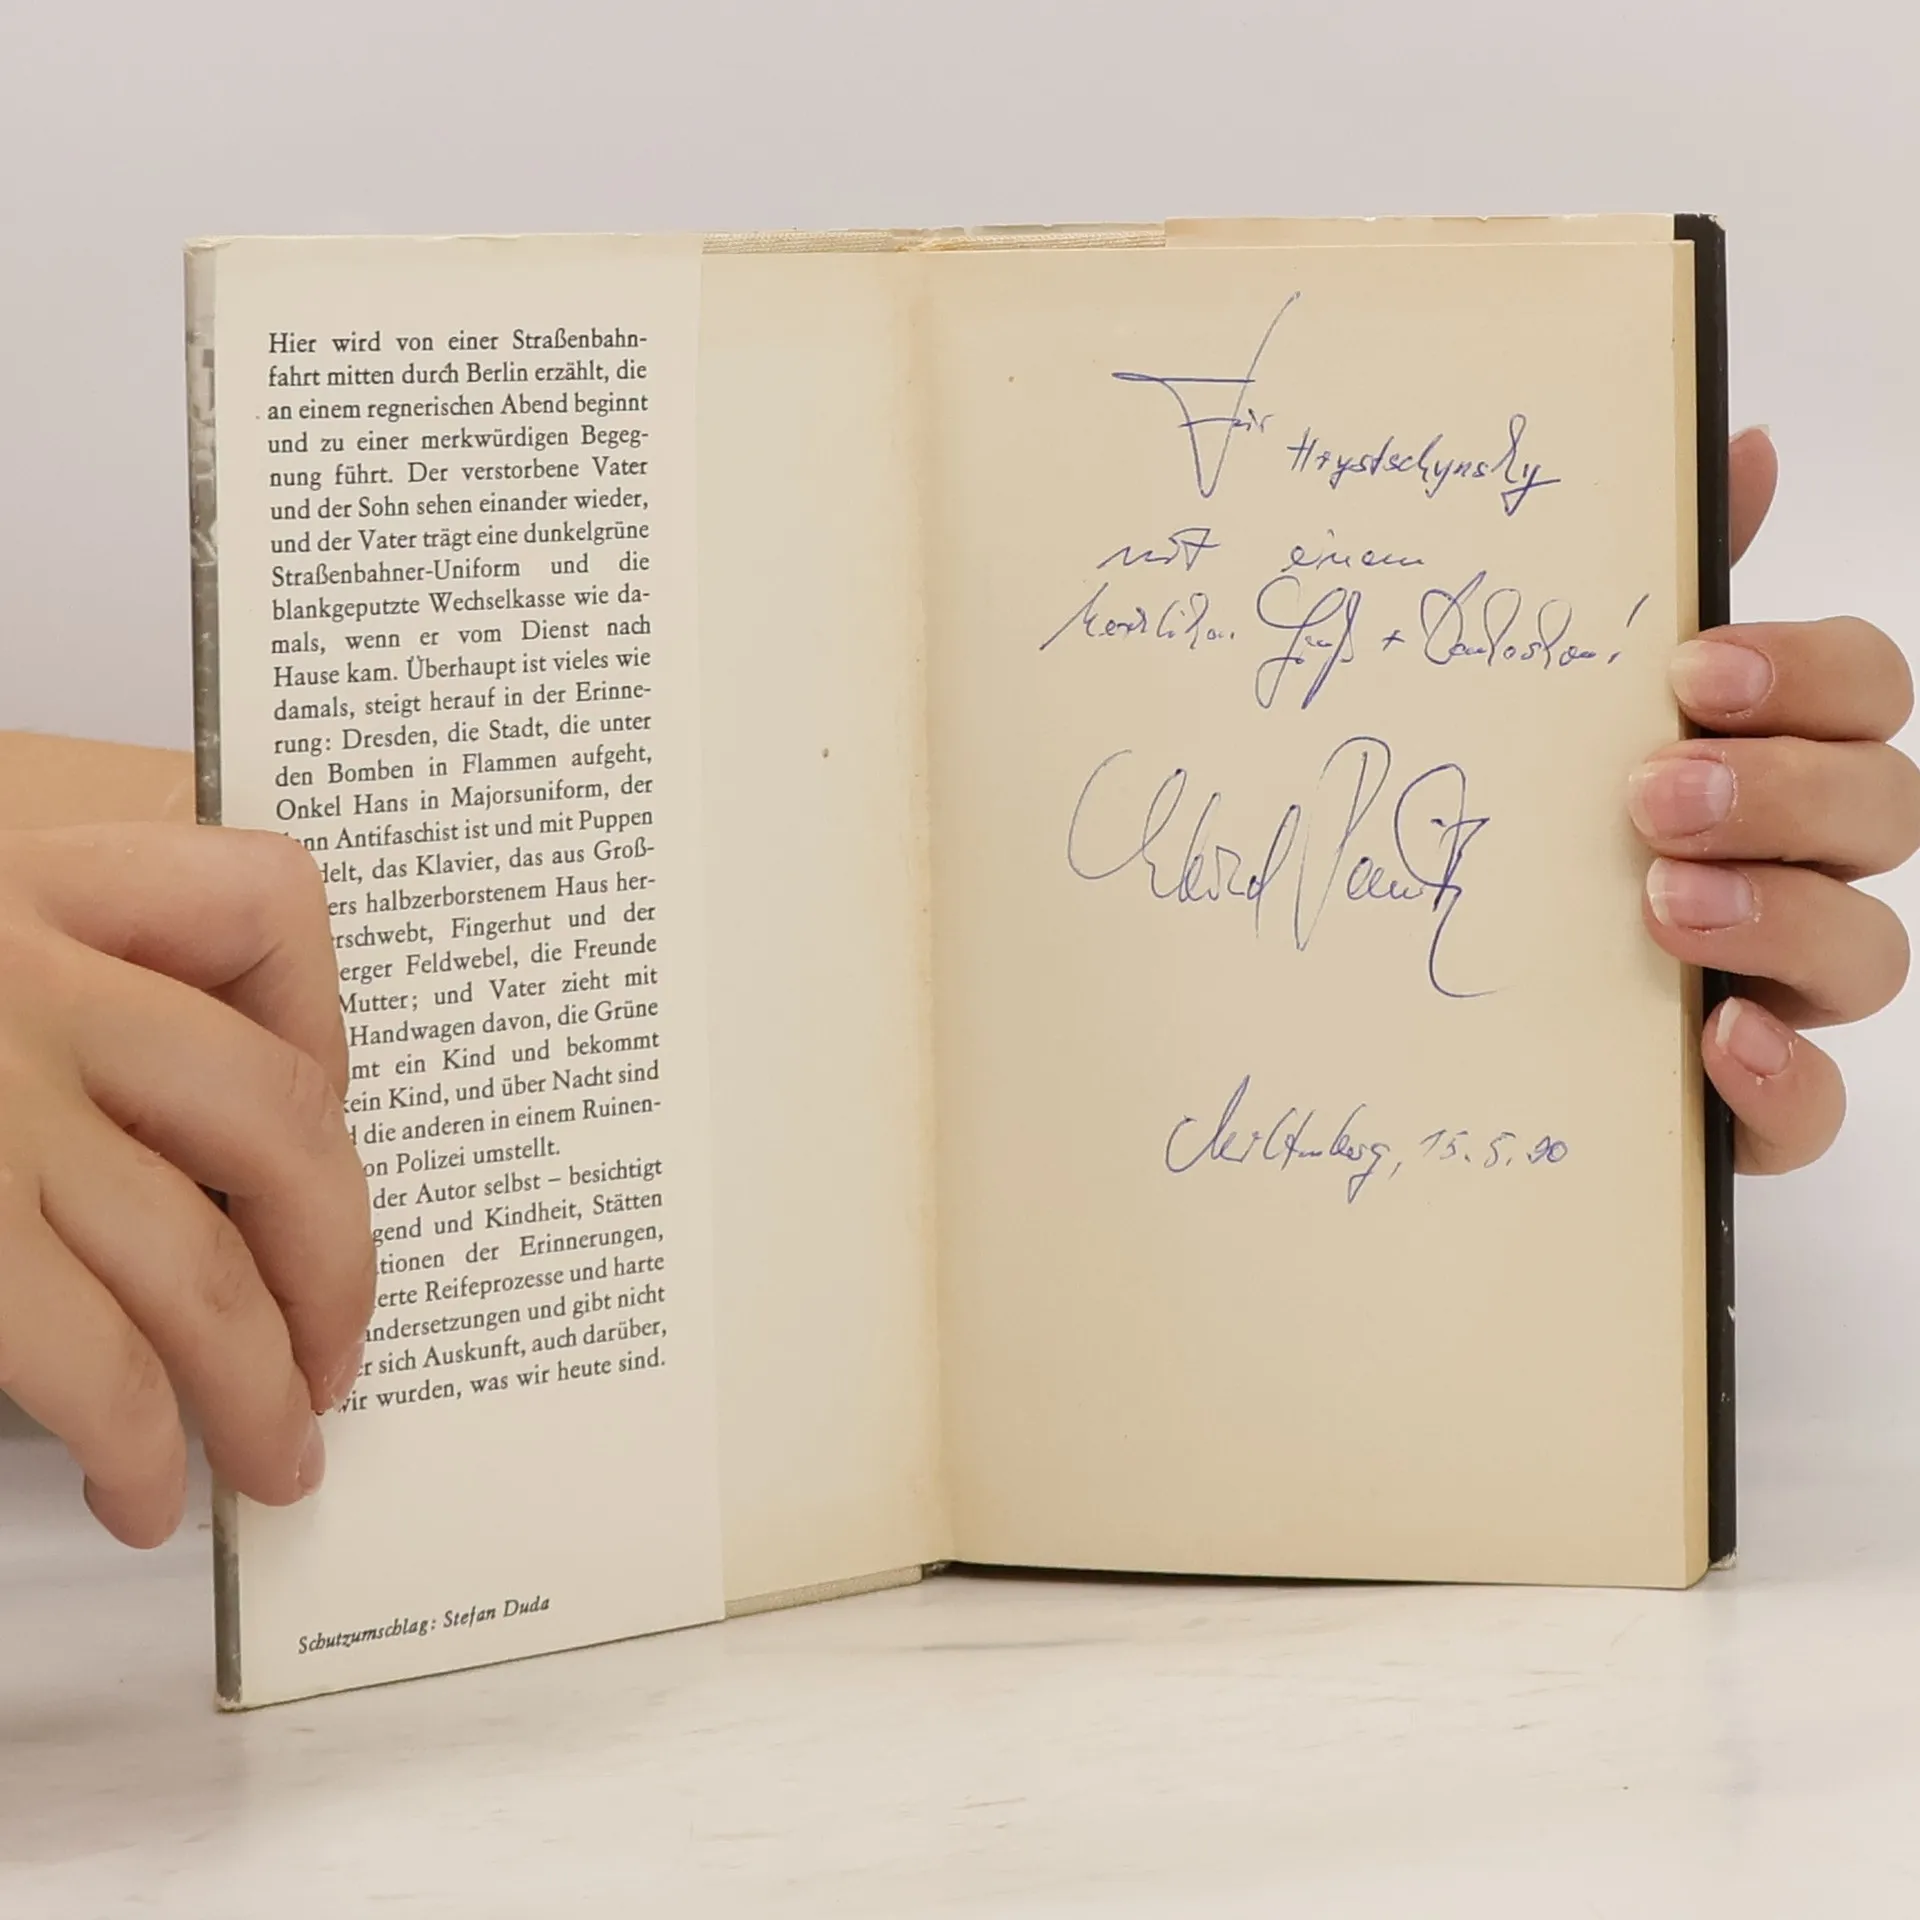 Hier wird von einer Straßenbahn-
fahrt mitten durch Berlin erzählt, die
an einem regnerischen Abend beginnt
und zu einer merkwürdigen Begeg-
nung führt. Der verstorbene Vater
und der Sohn sehen einander wieder,
und der Vater trägt eine dunkelgrüne
Straßenbahner-Uniform und die
blankgeputzte Wechselkasse wie da-
mals, wenn er vom Dienst nach
Hause kam. Überhaupt ist vieles wie
damals, steigt herauf in der Erinne-
rung: Dresden, die Stadt, die unter
den Bomben in Flammen aufgeht,
Onkel Hans in Majorsuniform, der
Antifaschist ist und mit Puppen
das Klavier, das aus Groß-
halbzerborstenem Haus her-
Fingerhut und der
Feldwebel, die Freunde
Mutter; und Vater zieht mit
Handwagen davon, die Grüne
ein Kind und bekommt
kein Kind, und über Nacht sind
die anderen in einem Ruinen-
Polizei umstellt.
der Autor selbst – besichtigt
und Kindheit, Stätten
der Erinnerungen,
Reifeprozesse und harte
und gibt nicht
sich Auskunft, auch darüber,
wir wurden, was wir heute sind.
Schutzumschlag: Stefan Duda
Für Hrystschynsky
mit einem
herzlichen Gruß + Dankeschön!
Eberhard Panitz
15.5.90